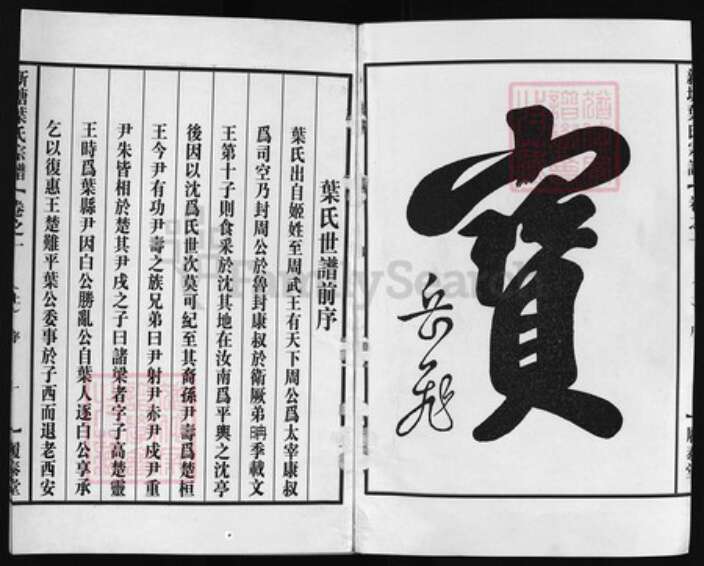 寶
岳飛
葉氏世譜前序
葉氏出自姬姓至周武王有天下周公爲太宰康叔
爲司空乃封周公於魯封康叔於衛厥弟聃季載文
王第十子則食采於沈其地在汝南爲平輿之沈亭
後因以沈爲氏世次莫可紀至其裔孫尹壽爲楚桓
王今尹有功尹壽之族兄弟曰尹射尹赤尹戌尹重
尹朱皆相於楚其尹戌之子曰諸梁者字子高楚靈
王時爲葉縣尹因白公勝亂公自葉人逐白公享承
乞以復惠王楚難平葉公委事於子西而退老西安
新塘葉氏宗譜
卷之一
序
一
履泰堂
FamilySearch